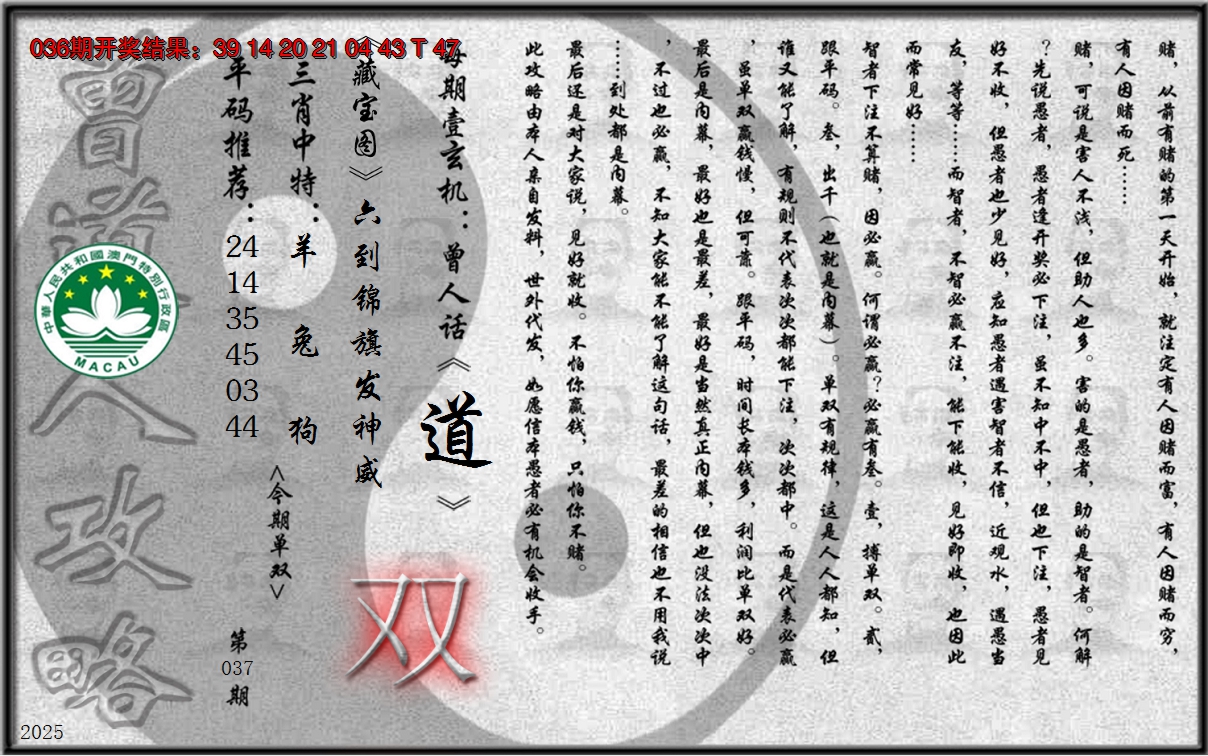 036期开奖结果：39 14 20 21 04 43 T 47
赌，从前有赌的第一天开始，就注定有人因赌而富，有人因赌而穷，
有人因赌而死……
赌，可说是害人不浅，但助人也多。害的是愚者，助的是智者。何解
？先说愚者，愚者逢开奖必下注，虽不知中不中，但也下注，愚者见
好不收，但愚者也少见好，应知愚者遇害智者不信，近观水，遇愚当
友，等等……而智者，不智必赢不注，能下能收，见好即收，也因此
而常见好……
智者下注不算赌，因必赢。何谓必赢？必赢有叁。壹，搏单双。贰，
跟平码。叁，出千（也就是内幕）。单双有规律，这是人人都知，但
谁又能了解，有规则不代表次次都能下注，次次都中。而是代表必赢
，虽单双赢钱慢，但可靠。跟平码，时间长本钱多，利润比单双好。
最后是内幕，最好也是最差，最好是当然真正内幕，但也没法次次中
，不过也必赢，不知大家能不能了解这句话，最差的相信也不用我说
……到处都是内幕。
最后还是对大家说，见好就收。不怕你赢钱，只怕你不赌。
此攻略由本人亲自发料，世外代发，如愿信本愚者必有机会收手。
每期壹玄机：曾人话《道》
《藏宝图》六到锦旗发神威
双
三肖中特：羊 兔 狗
<今期单双>
平码推荐：24 14 35 45 03 44
第037期
曾道人攻略
中華人民共和國澳門特別行政區
MACAU
2025